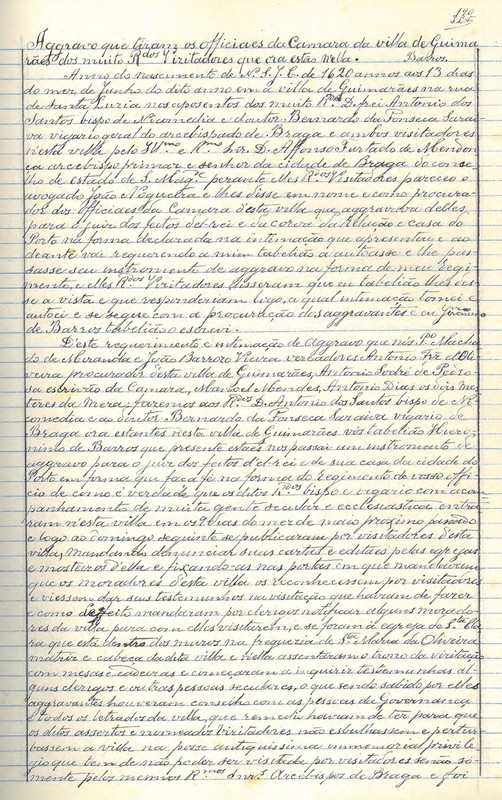 190
Aggravo que tiram os officiaes da Camara da villa de Guima
rães dos muito Rdos Visitadores que ora estão nella. Barros.
Anno do nascimento de N. S. J. C. de 1620 annos aos 13 dias
do mez de Junho do dito anno em a villa de Guimarães na rua
de Santa Luzia nos aposentos dos muito Rdos D. frei Antonio dos
Santos bispo de Nicomedia e doutor Bernardo da Fonseca Sarai
va vigario geral do arcebispado de Braga e ambos visitadores
nesta villa pelo Illmo e Rmo Snr. D. Affonso Furtado de Mendon
ça arcebispo primaz e senhor da cidade de Braga do conse
lho de estado de S. Magde perante elles Rdos Visitadores pareceo o
avogado João Nogueira e lhes disse em nome e como procura
dor dos officiaes da Camara d'esta villa que aggravava delles
para o juiz dos feitos d'el-rei e da coroa da relação e casa do
Porto na forma declarada na intimação que apresentou e ao
deante vai requerendo a mim tabelião a autoasse e lhe pas
sasse seu instromento de aggravo na forma de meu regi
mento, e elles Rdos Visitadores disseram que eu tabelião lhes des
se a vista e que responderiam logo, a qual intimação tomei e
autoei e se segue com a procuração dos aggravantes e eu Jeronimo
de Barros tabelião o escrevi.
D'este requerimento e intimação de Aggravo que nós Po Macha
do de Miranda e João Barrozo Vieira vereadores Antonio Frz d'Oli
veira procurador d'esta villa de Guimarães, Antonio Sodré de Pedro
sa escrivão da Camara, Manoel Mendes, Antonio Dias os dois mes
teres da Meza, fazemos aos Rdos D. Antonio dos Santos bispo de Ni
comedia e ao doutor Bernardo da Fonseca Saraiva vigario de
Braga ora estantes nesta villa de Guimarães vós tabelião Hiero
nimo de Barros que presente estaes nos passai um instromento de
aggravo para o juiz dos feitos d'el-rei e de sua casa da cidade do
Porto em forma que faça fé na forma do regimento de vosso offi
cio de como é verdade que os ditos Rdos bispo e vigario com acom
panhamento de muita gente secular e ecclesiastica entra
ram n'esta villa em os dias do mez de maio proximo passado
e logo ao domingo seguinte se publicaram por visitadores d'esta
villa, mandando denunciar suas cartas e editaes pelas egrejas
e mosteiros della e fixando-as nas portas em que mandavam
que os moradores d'esta villa os reconhecessem por visitadores
e viessem dar seus testemunhos na visitação que haviam de fazer
e como de feito mandaram por clerigos notificar alguns morado
res da villa para com elles visitarem, e se foram á egreja de S.
ra que está dentro dos muros na freguezia de Sta Maria da Oliveira
matriz e cabeça da dita villa e nella assentaram o trono da visitação
com mesas e cadeiras e começaram a inquirir testemunhas al
guns clerigos e outras pessoas seculares, o que sendo sabido por elles
aggravantes houveram conselho com as pessoas da Governança
e todos os letrados da villa, que remedio haviam de ter para que
os ditos assertos e nomeados Visitadores não esbulhassem e pertur
bassem a villa na posse antiquissima immemorial privile
gio que tem de não poder ser visitada por visitadores senão só
mente pelos mesmos Rmos Snrs Arcebispos de Braga e foi